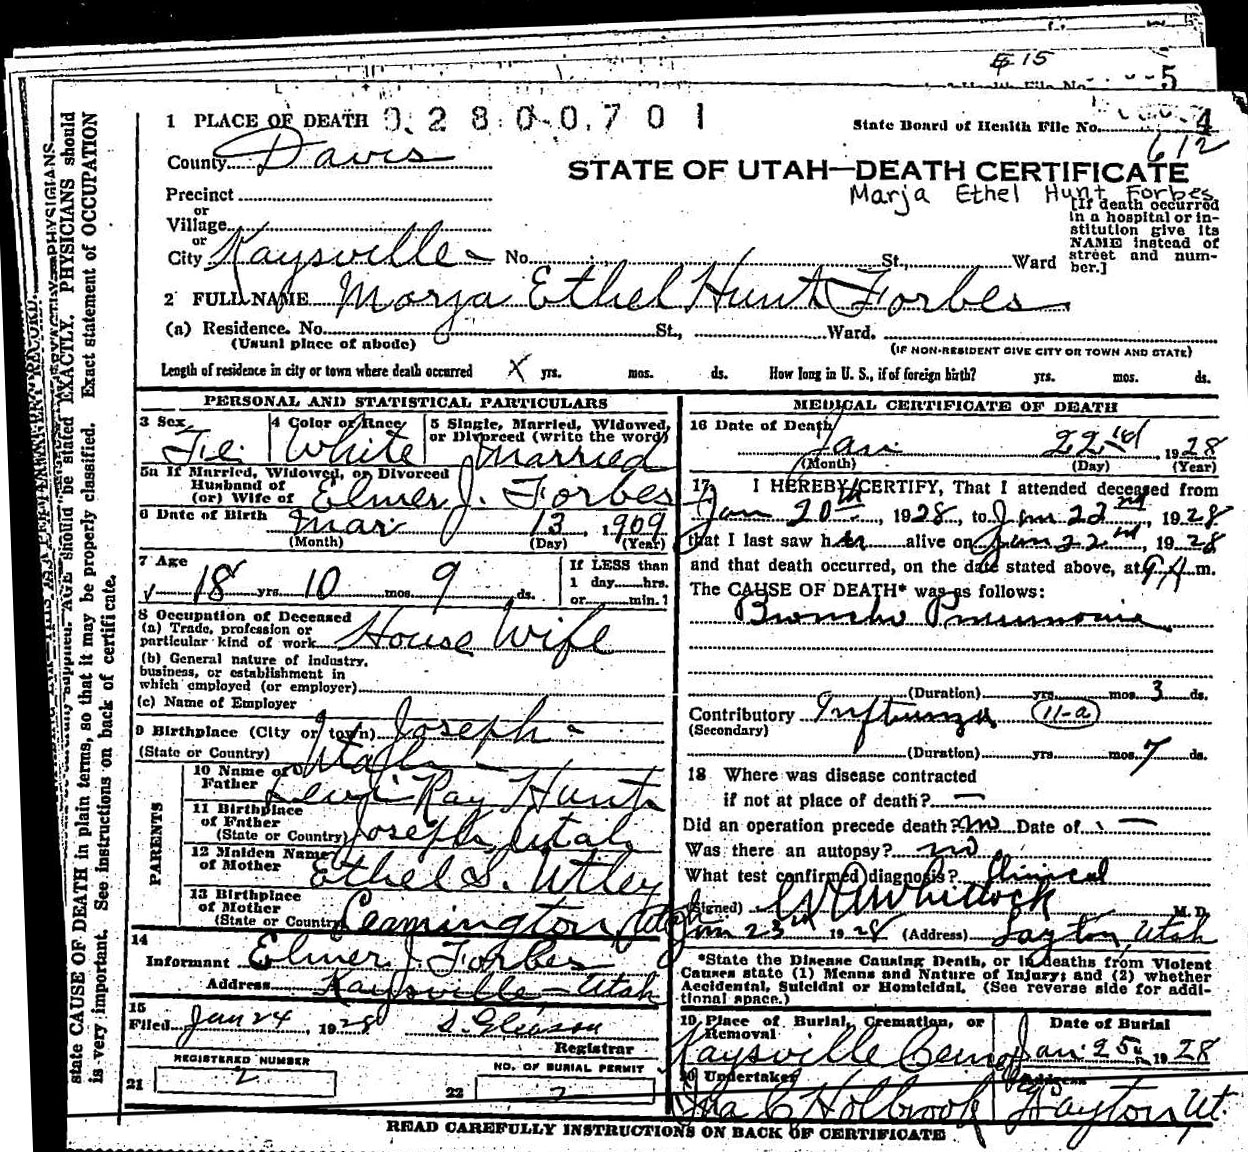 15
5
4
1 PLACE OF DEATH 0 2 8 0 0 7 0 1
State Board of Health File No.
612
County Davis
STATE OF UTAH—DEATH CERTIFICATE
Marja Ethel Hunt Forbes
Precinct
or
Village
or
City Kaysville No. St., Ward
[If death occurred
in a hospital or in-
stitution give its
NAME instead of
street and num-
ber.]
2 FULL NAME Marja Ethel Hunt Forbes
(a) Residence. No. St., Ward.
(Usual place of abode)
(IF NON-RESIDENT GIVE CITY OR TOWN AND STATE)
Length of residence in city or town where death occurred X yrs. mos. ds. How long in U. S., if of foreign birth? yrs. mos. ds.
PERSONAL AND STATISTICAL PARTICULARS
3 Sex
Fe
4 Color or Race
White
5 Single, Married, Widowed,
or Divorced (write the word)
Married
5a If Married, Widowed, or Divorced
Husband of
(or) Wife of Elmer J. Forbes
6 Date of Birth Mar 13, 1909
(Month) (Day) (Year)
7 Age
18 yrs. 10 mos. 9 ds.
If LESS than
1 day.....hrs.
or.....min.?
8 Occupation of Deceased
(a) Trade, profession or
particular kind of work House Wife
(b) General nature of industry,
business, or establishment in
which employed (or employer)
(c) Name of Employer
9 Birthplace (City or town) Joseph
(State or Country) Utah
PARENTS
10 Name of
Father Levi Ray Hunt
11 Birthplace
of Father
(State or Country) Joseph, Utah
12 Maiden Name
of Mother Ethel S. Utley
13 Birthplace
of Mother
(State or Country) Leamington, Utah
14
Informant Elmer J. Forbes
Address Kaysville - Utah
15
Filed Jan 24, 1928 S. Gleason
Registrar
REGISTERED NUMBER
21 2
NO. OF BURIAL PERMIT
22 2
MEDICAL CERTIFICATE OF DEATH
16 Date of Death
Jan 22nd 1928
(Month) (Day) (Year)
17 I HEREBY CERTIFY, That I attended deceased from
Jan 20th, 1928, to Jan 22nd, 1928
that I last saw her alive on Jan 22nd, 1928
and that death occurred, on the date stated above, at 9 A.m.
The CAUSE OF DEATH* was as follows:
Broncho Pneumonia
(Duration) yrs. mos. 3 ds.
Contributory Influenza 11-a
(Secondary)
(Duration) yrs. mos. 7 ds.
18 Where was disease contracted
if not at place of death? —
Did an operation precede death? no Date of —
Was there an autopsy? no
What test confirmed diagnosis? Clinical
(Signed) Whitlock M.D.
Jan 23rd 1928 (Address) Layton, Utah
*State the Disease Causing Death, or in deaths from Violent
Causes state (1) Means and Nature of Injury; and (2) whether
Accidental, Suicidal or Homicidal. (See reverse side for addi-
tional space.)
19 Place of Burial, Cremation, or
Removal
Kaysville Cem
Date of Burial
Jan. 25 1928
20 Undertaker
Ira C Holbrook
Address
Layton, Ut.
READ CAREFULLY INSTRUCTIONS ON BACK OF CERTIFICATE
AGE should be stated EXACTLY. PHYSICIANS should
state CAUSE OF DEATH in plain terms, so that it may be properly classified. Exact statement of OCCUPATION
is very important. See instructions on back of certificate.